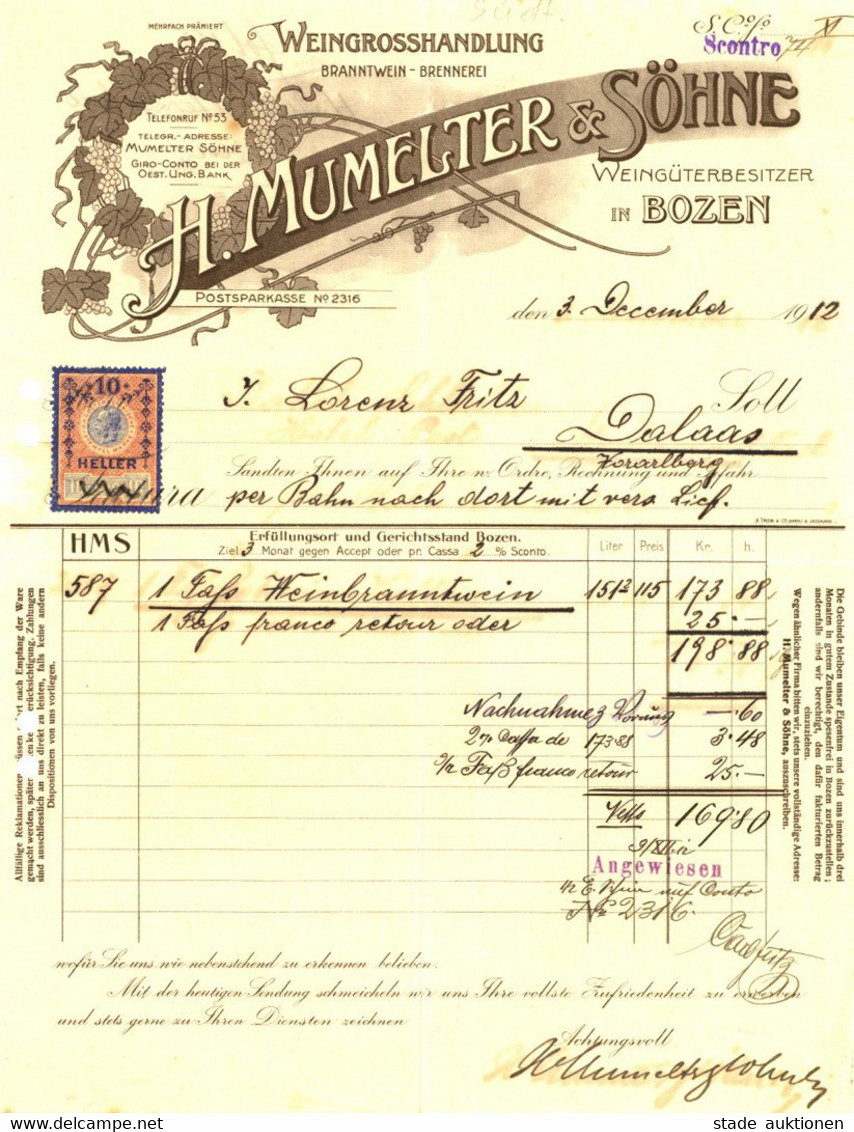 MEHRFACH PRÄMIIERT
WEINGROSSHANDLUNG
BRANNTWEIN - BRENNEREI
Scontro
TELEFONRUF No 53
TELEGR.- ADRESSE:
MUMELTER SÖHNE
GIRO-CONTO BEI DER
OEST. UNG. BANK
H. MUMELTER & SÖHNE
WEINGÜTERBESITZER
IN BOZEN
POSTSPARKASSE No 2316
den 3. December 1912
10
HELLER
Lorenz Fritz Soll
Dalaas
Vorarlberg
Sandten Ihnen auf Ihre w. Ordre, Rechnung und Gefahr
per Bahn nach dort mit vers. Lief.
HMS
Erfüllungsort und Gerichtsstand Bozen.
Ziel 3 Monat gegen Accept oder pr. Cassa 2 % Sconto.
Liter Preis Kr. h.
587 1 Faß Weinbranntwein 151² 115 173 88
1 Faß franco retour oder 25.—
198.88
Nachnahme —.60
173.88 3.48
Faß franco retour 25.—
169.80
Angewiesen
auf Conto
2316.
Allfällige Reklamationen müssen sofort nach Empfang der Ware
gemacht werden, später keine Berücksichtigung. Zahlungen
sind ausschliesslich an uns direkt zu leisten, falls keine andern
Dispositionen von uns vorliegen.
Die Gebinde bleiben unser Eigentum und sind uns innerhalb drei
Monaten in gutem Zustande spesenfrei in Bozen zurückzustellen;
andernfalls sind wir berechtigt, den dafür fakturierten Betrag
einzuziehen.
Wegen ähnlicher Firma bitten wir, stets unsere vollständige Adresse:
H. Mumelter & Söhne, auszuschreiben.
wofür Sie uns wie nebenstehend zu erkennen belieben.
Mit der heutigen Sendung schmeicheln wir uns Ihre vollste Zufriedenheit zu erwerben
und stets gerne zu Ihren Diensten zeichnen
Achtungsvoll
H Mumelter & Söhne
DELCAMPE.NET
stade auktionen